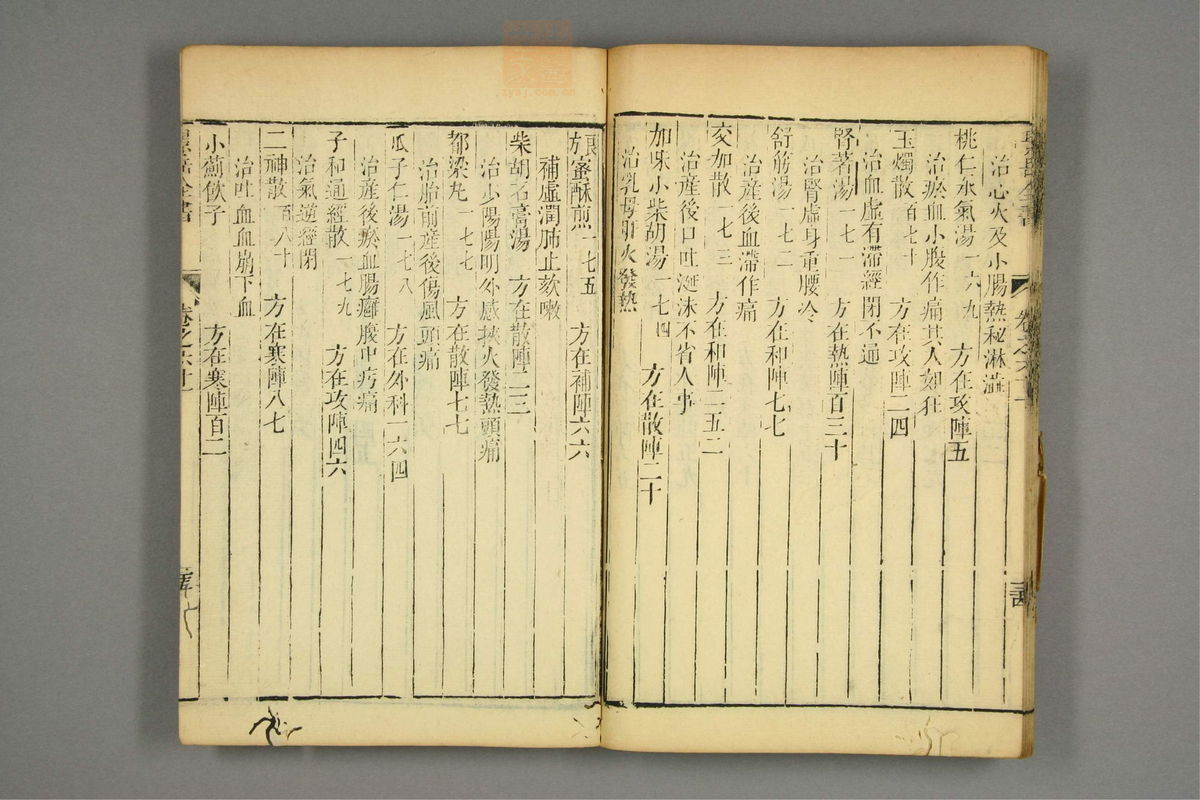 治心火及小腸熱秘淋澁
桃仁承氣湯一六九 方在攻陣五
治瘀血小腹作痛其人如狂
玉燭散百七十 方在攻陣二四
治血虛有滯經閉不通
腎著湯一七一 方在熱陣百三十
治腎虛身重腰冷
舒筋湯一七二 方在和陣七七
治產後血滯作痛
交加散一七三 方在和陣二五二
治產後口吐涎沫不省人事
加味小柴胡湯一七四 方在散陣二十
治乳母肝火發熱
蜜酥煎一七五 方在補陣六六
補虛潤肺止欬嗽
柴胡石膏湯 方在散陣二三
治少陽陽明外感挾火發熱頭痛
都梁丸一七七 方在散陣七七
治胎前產後傷風頭痛
瓜子仁湯一七八 方在外科一六四
治產後瘀血腸癰腹中㽲痛
子和通經散一七九 方在攻陣四六
治氣逆經閉
二神散百八十 方在寒陣八七
治吐血血崩下血
小薊飲子 方在寒陣百二
全書
卷之六十